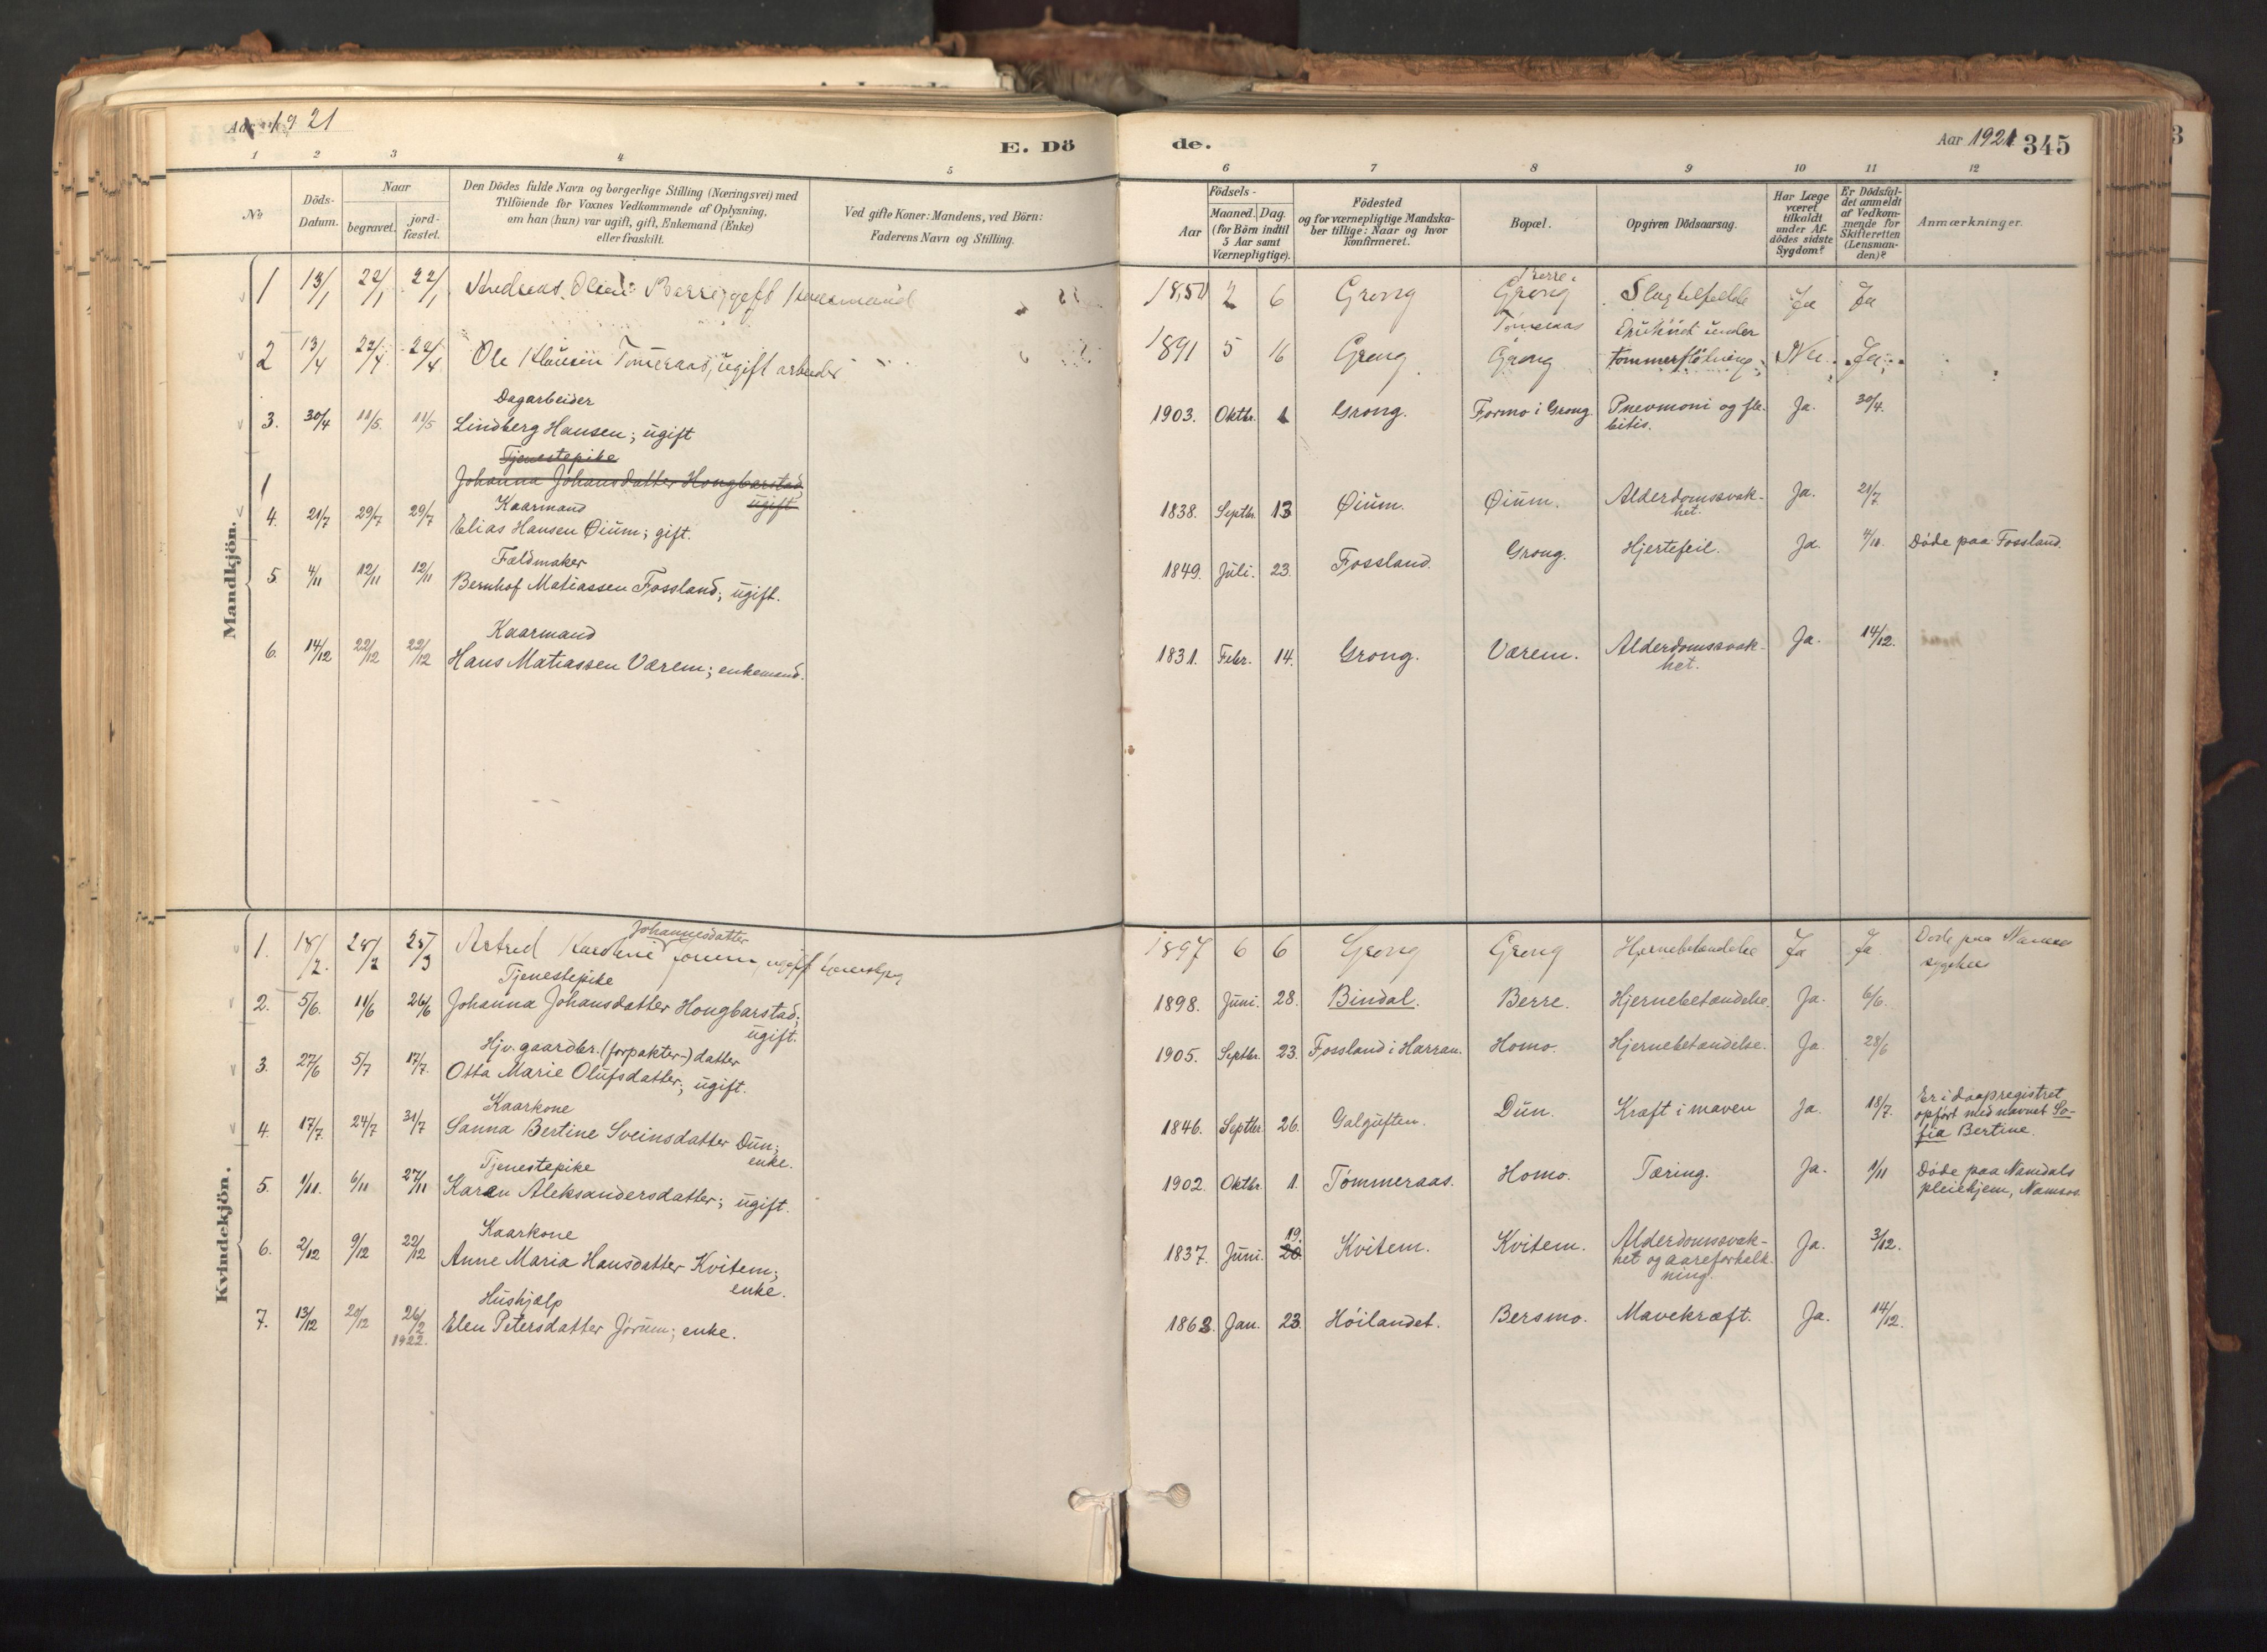 Aar 1921
E. Dö
1 2 3 4 5
No
Döds-
Datum.
Naar
begravet.
jord-
fæstet.
Den Dödes fulde Navn og borgerlige Stilling (Næringsvei) med
Tilföiende for Voxnes Vedkommende af Oplysning,
om han (hun) var ugift, gift, Enkemand (Enke)
eller fraskilt.
Ved gifte Koner: Mandens, ved Börn:
Faderens Navn og Stilling.
Mandkjön.
1 13/1 22/1 22/1 Andreas Berre, gift Kaarmand
2 13/4 22/4 22/4 Ole Klausen Tømeraas, ugift arbeider
Dagarbeider
3. 30/4 11/5. 11/5 Lindberg Hansen; ugift
Tjenestepike
1 Johanna Johansdatter Hongbarstad
ugift
Kaarmand
4. 21/7 29/7 29/7 Elias Hansen Øium; gift.
Fældmaker
5 4/11 12/11 12/11 Bernhof Matiassen Fossland; ugift.
Kaarmand
6. 14/12 22/12 22/12 Hans Matiassen Værem; enkemand.
Kvindekjön.
Johannesdatter
1. 18/2. 28/2 25/3 Astrid Karoline Jørum, ugift
Tjenestepike
2. 5/6. 11/6 26/6 Johanna Johansdatter Hongbarstad;
ugift.
Hjv. gaardbr. (forpakter-) datter
3. 27/6 5/7 17/7. Otta Marie Olufsdatter; ugift.
Kaarkone
4. 17/7. 24/7 31/7 Sanna Bertine Sveinsdatter Dun;
enke.
Tjenestepike
5. 1/11. 6/11 27/11 Karen Aleksandersdatter; ugift.
Kaarkone
6. 2/12 9/12 22/12 Anne Maria Hansdatter Kvitem;
enke.
Hushjælp
7. 13/12 20/12 26/2 1922. Elen Petersdatter Jørum; enke.
de.
Aar 1921 345
6 7 8 9 10 11 12
Födsels-
Aar
Maaned. Dag.
(for Börn indtil
5 Aar samt
Værnepligtige).
Födested
og for værnepligtige Mandska-
ber tillige: Naar og hvor
konfirmeret.
Bopæl.
Opgiven Dödsaarsag.
Har Læge
været
tilkaldt
under Af-
dödes sidste
Sygdom?
Er Dödsfal-
det anmeldt
af Vedkom-
mende for
Skifteretten
(Lensman-
den)?
Anmærkninger.
Berre i
1850 2 6 Grong Grong Slagtilfælde Ja Ja
Tømeraas Druknet under
1891 5 16 Grong Grong tommerfløtning Nei Ja
1903. Oktbr. 1 Grong. Formo i Grong. Pnevmoni og fle- Ja. 30/4.
bitis.
1838. Septbr. 13 Øium. Øium. Alderdomssvak- Ja. 21/7
het.
1849. Juli. 23. Fossland. Grong. Hjertefeil. Ja. 4/11. Døde paa Fossland.
1831. Febr. 14. Grong. Værem. Alderdomssvak- Ja. 14/12.
het.
1897 6 6 Grong Grong Hjernebetændelse Ja Ja Døde paa Namsos
sygehus
1898. Juni. 28. Bindal. Berre. Hjernebetændelse. Ja. 6/6.
1905. Septbr. 23. Fossland i Harran. Homo. Hjernebetændelse. Ja. 28/6
1846. Septbr. 26. Galguften. Dun. Kræft i maven Ja. 18/7. Er i daapregistret
opført med navnet So-
fia Bertine.
1902. Oktbr. 1. Tømmeraas. Homo. Tæring. Ja. 1/11 Døde paa Namdals
pleiehjem, Namsos.
19.
1837. Juni. 20 Kvitem. Kvitem. Alderdomssvak- Ja. 3/12.
het og aareforkalk-
ning.
1863. Jan. 23. Høilandet. Bersmo. Mavekræft. Ja. 14/12.